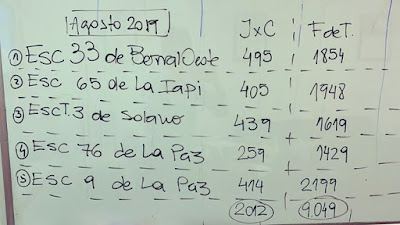 Agosto 2019
JxC FdeT.
① Esc 33 de Bernal Oeste 495 1854
② Esc 65 de La Iapi 405 1948
③ EscT.3 de Solano 439 1619
④ Esc 76 de La Paz 259 1429
⑤ Esc 9 de La Paz 414 2199
2012 9.049